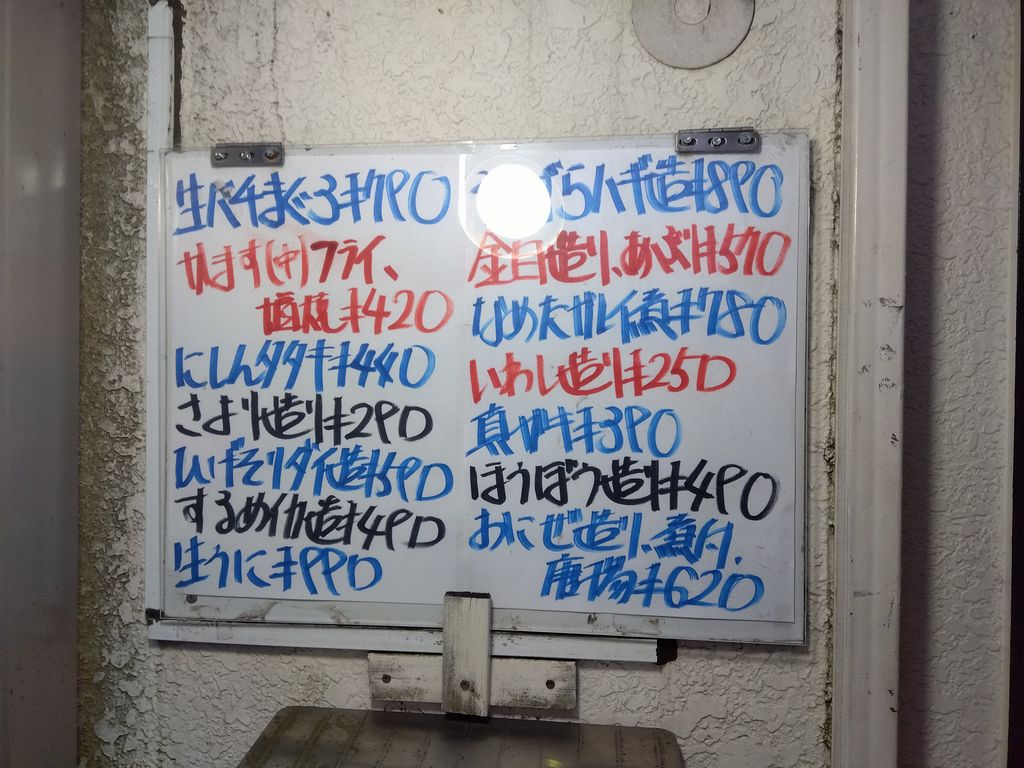 生バチまぐろ¥790
やます(中)フライ、
塩焼¥420
にしんタタキ¥440
さより造り¥290
ひげそりダイ造¥590
するめイカ造¥490
生うに¥990
うまづらハギ造¥890
金目造り、あぶり¥570
なめたガレイ煮¥780
いわし造り¥250
真ガキ¥390
ほうぼう造り¥490
おにぜ造り、煮付、
唐揚¥620